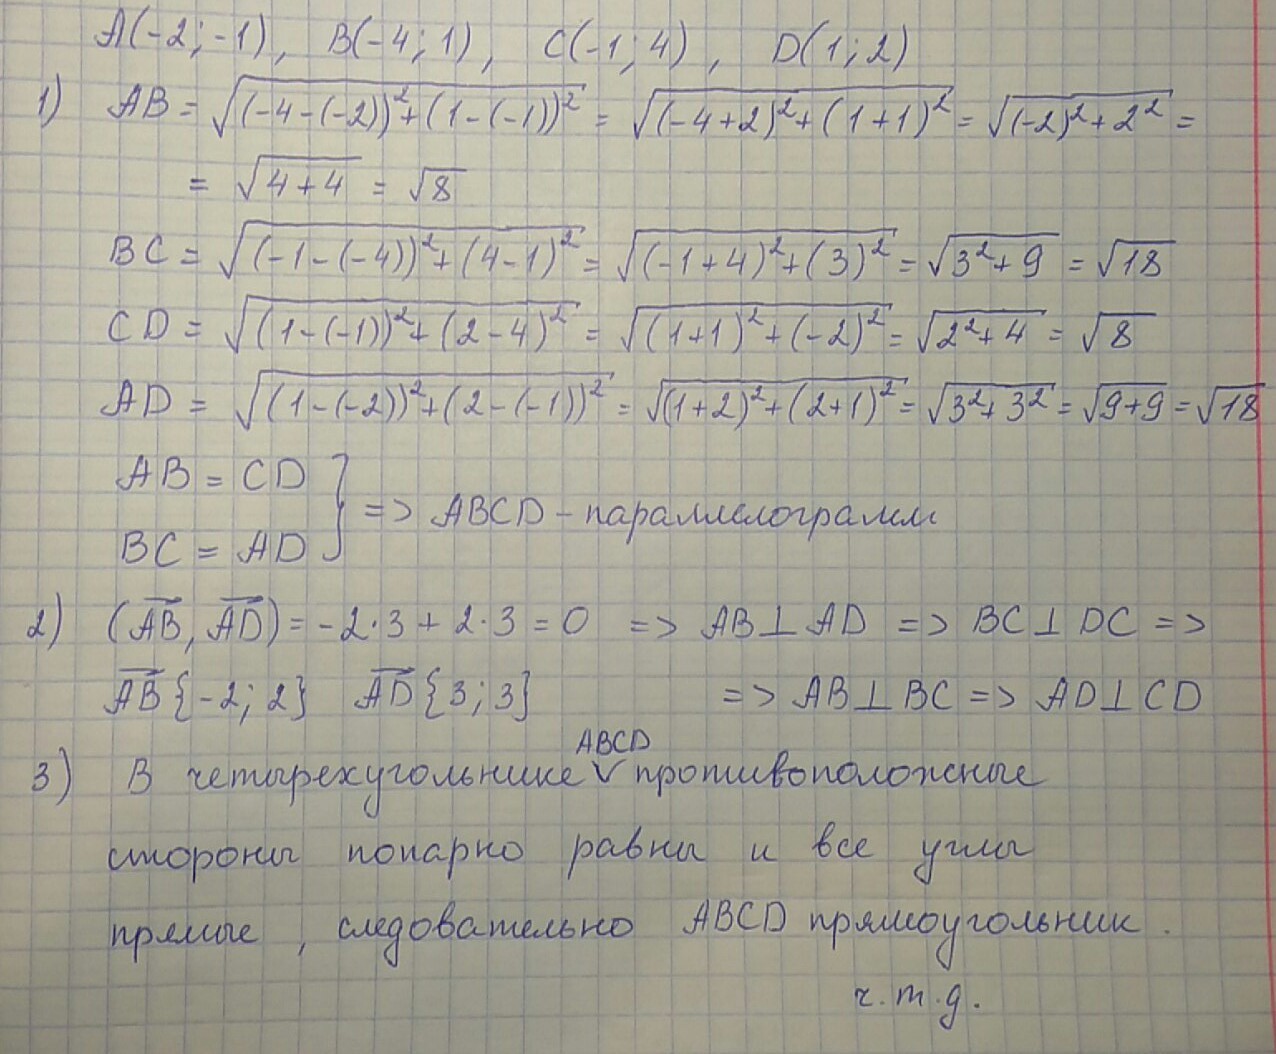 A(-2; -1), B(-4; 1), C(-1; 4), D(1; 2)
1) AB = √((-4-(-2))²+(1-(-1))²) = √((-4+2)²+(1+1)²) = √((-2)²+2²) =
= √(4+4) = √8
BC = √((-1-(-4))²+(4-1)²) = √((-1+4)²+(3)²) = √(3²+9) = √18
CD = √((1-(-1))²+(2-4)²) = √((1+1)²+(-2)²) = √(2²+4) = √8
AD = √((1-(-2))²+(2-(-1))²) = √((1+2)²+(2+1)²) = √(3²+3²) = √(9+9) = √18
AB = CD
BC = AD } => ABCD - параллелограмм
2) (AB, AD) = -2·3 + 2·3 = 0 => AB⊥AD => BC⊥DC =>
AB{-2; 2} AD{3; 3} => AB⊥BC => AD⊥CD
3) В четырехугольнике ABCD противоположные
стороны попарно равны и все углы
прямые, следовательно ABCD прямоугольник.
ч.т.д.